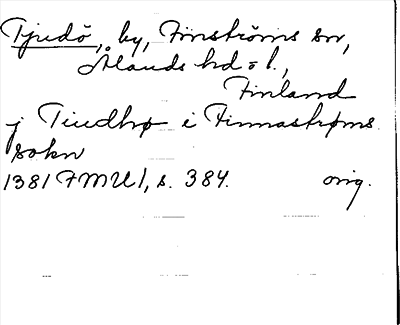 Tjudö, by, Finströms sn,
Ålands hd o l.,
Finland
j Tiudhø i Finnastrøms
sokn
1381 FMU 1, s. 384. orig.